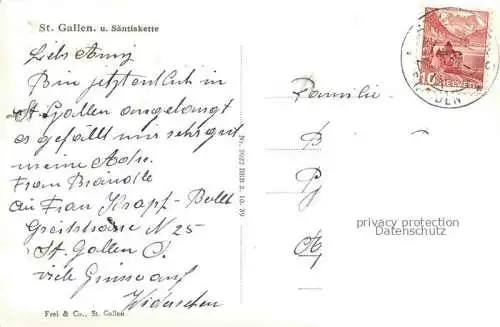 St. Gallen. u. Säntiskette
Liebs Anny
Bin jetzt entlich in
St Gallen angelangt
es gefällt mir sehr gut
meine Adr.
Frau Brändle
au Frau Krapf-Bollt
N 25
St. Gallen O.
viele Grüsse auf
Widersehen
Frei & Co., St. Gallen
Nr. 7022 BRB 3. 10. 39
Familie
B
P
privacy protection
Datenschutz
10
HELVETIA